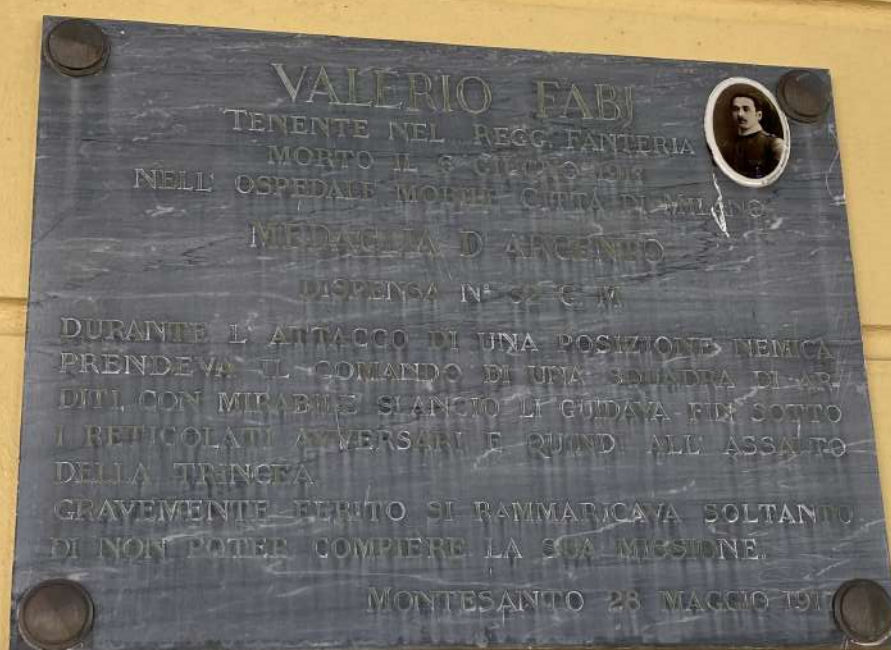 VALERIO FABJ
TENENTE NEL REGG. FANTERIA
MORTO IL GIUGNO 1917
NELL' OSPEDALE MOBILE CITTÀ DI MILANO
MEDAGLIA D ARGENTO
DISPENSA Nº 32 C. M.
DURANTE L' ATTACCO DI UNA POSIZIONE NEMICA
PRENDEVA IL COMANDO DI UNA SQUADRA DI AR
DITI, CON MIRABILE SLANCIO LI GUIDAVA FIN SOTTO
I RETICOLATI AVVERSARI E QUINDI ALL' ASSALTO
DELLA TRINCEA.
GRAVEMENTE FERITO SI RAMMARICAVA SOLTANTO
DI NON POTER COMPIERE LA SUA MISSIONE.
MONTESANTO 28 MAGGIO 1917